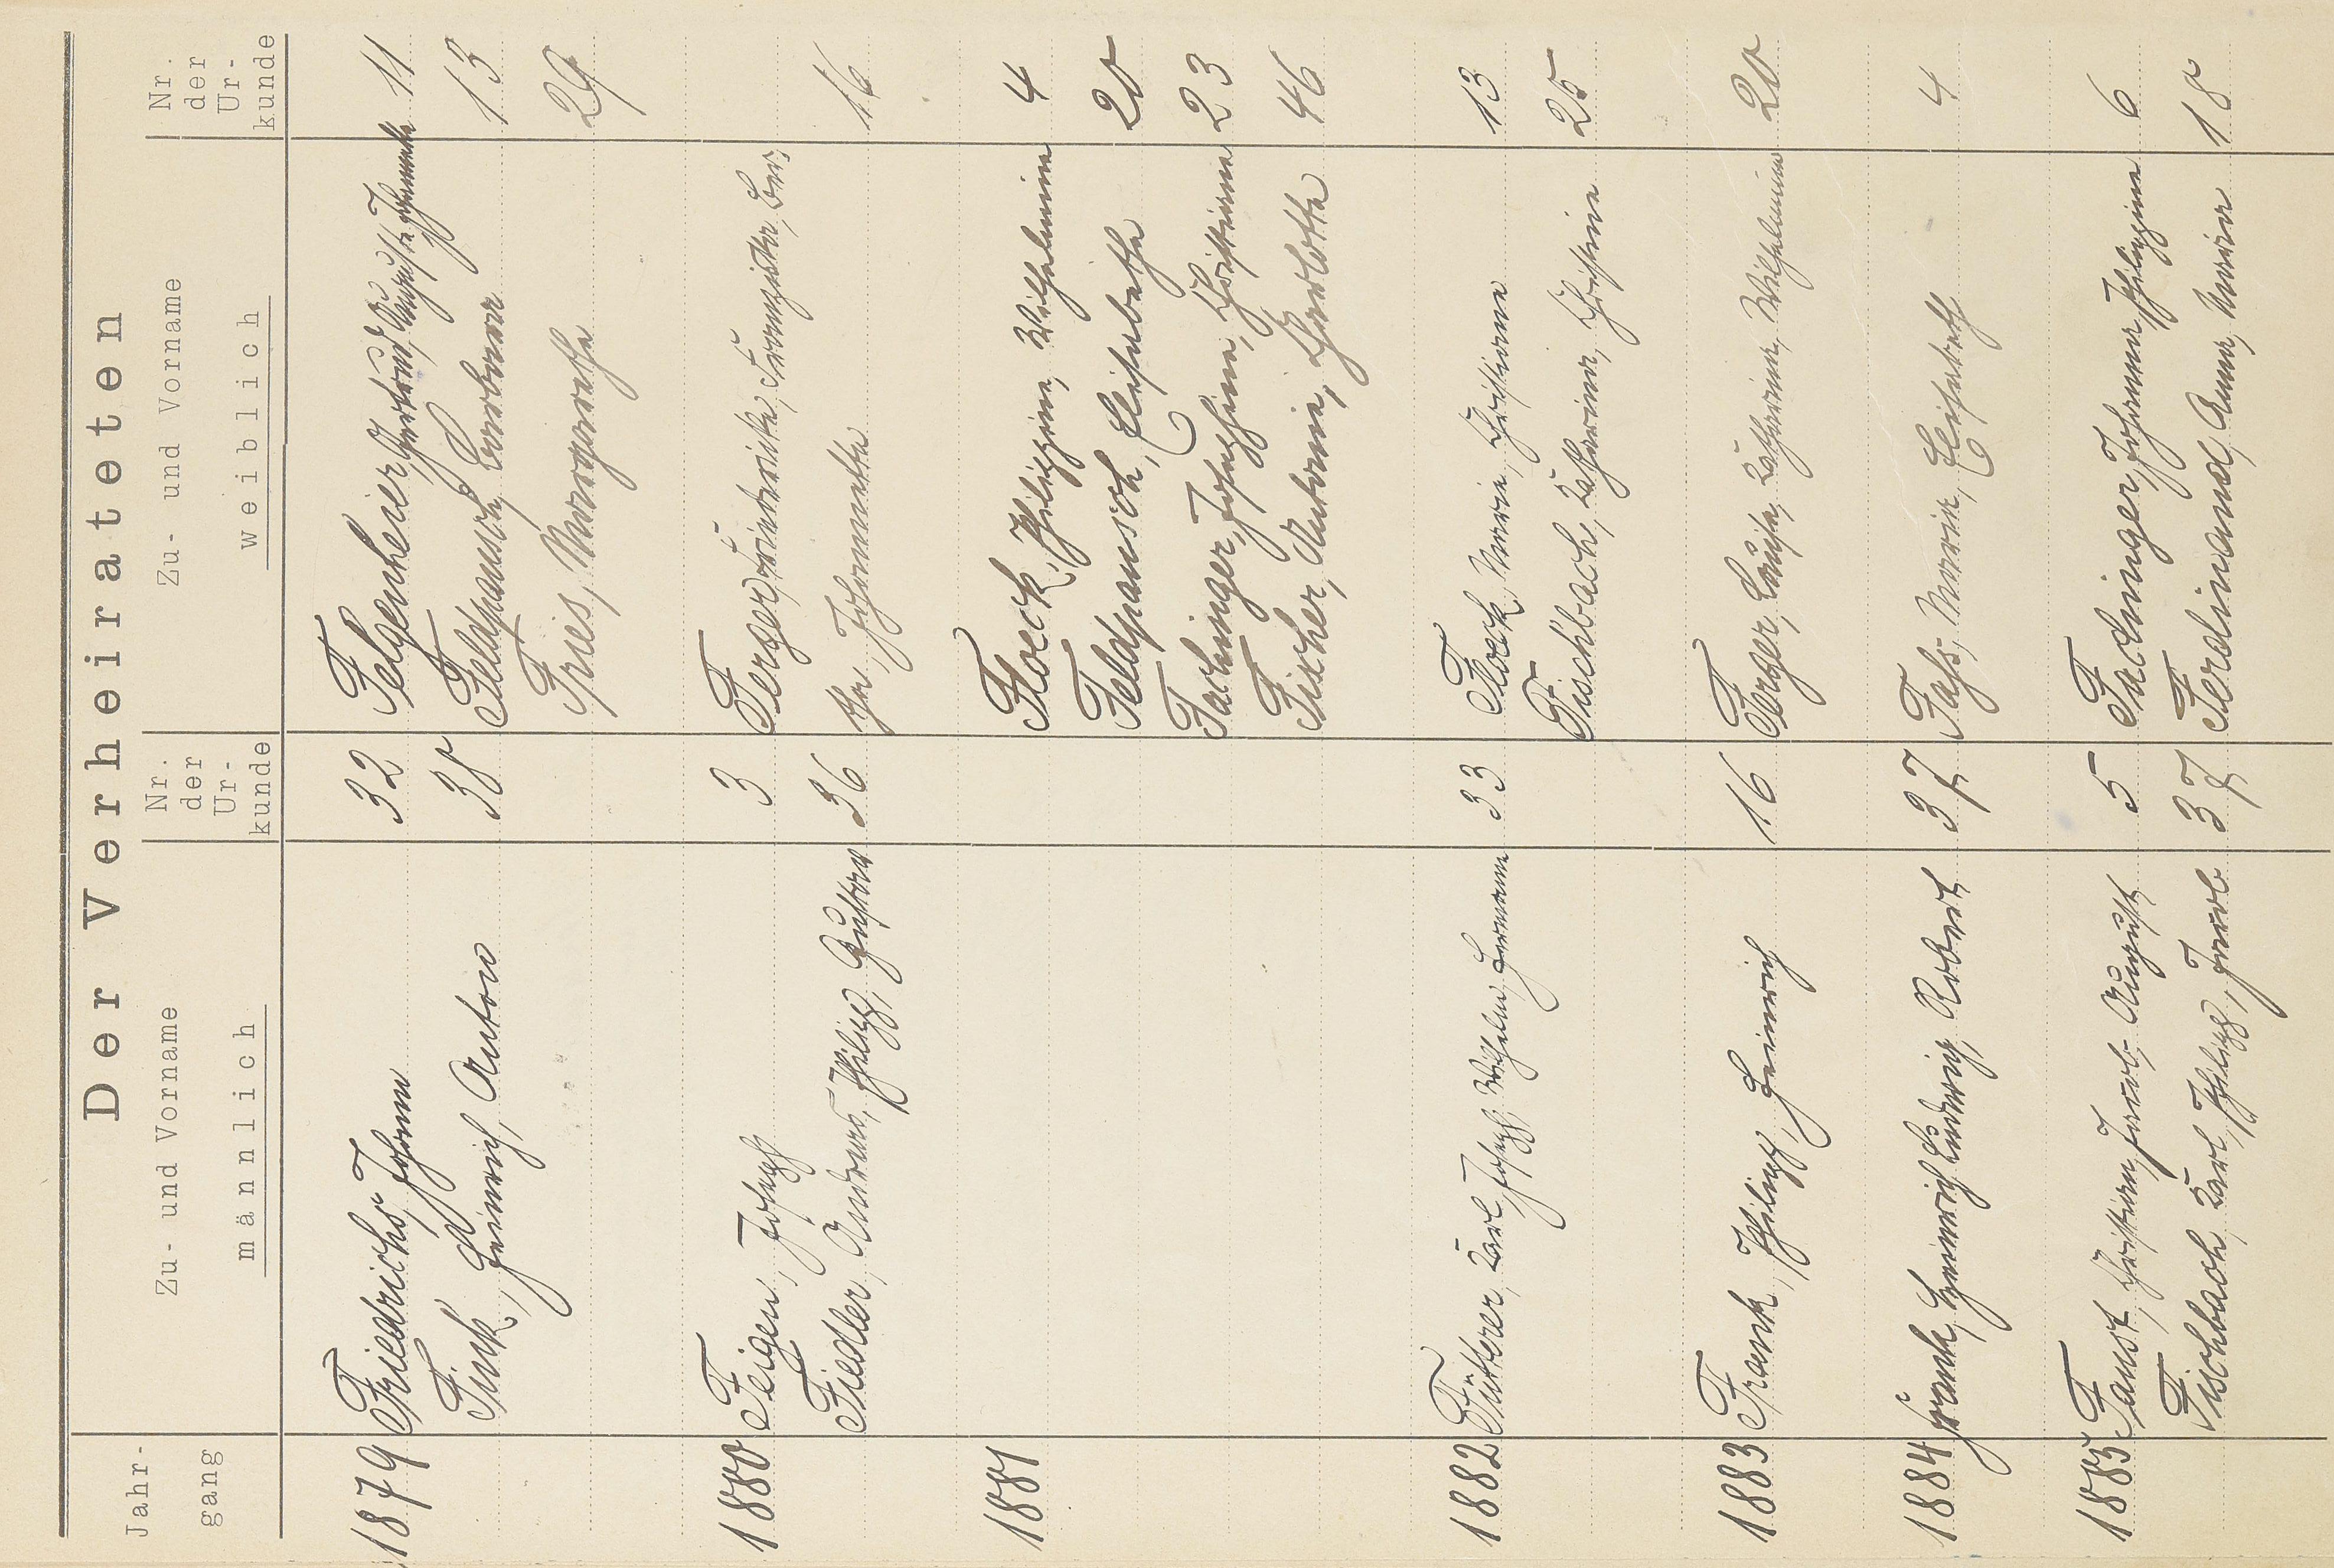 Der Verheirateten
Jahrgang Zu- und Vorname männlich Nr. der Urkunde Zu- und Vorname weiblich Nr. der Urkunde
1879 Friedrichs, Johann 32 Felgenheier Gertrud, Auguste Johannette 11
Fink, Heinrich, Anton 38 Feldpausch, Barbara 13
Fries, Margarethe 29
1880 Feigen, Joseph 3 Ferger, Friederike, Franziska, Bar,
Fiedler, Andreas, Philipp, Gustav 36 Johannetta 16
1881 Flöck, Philippine, Wilhelmine 4
Feldpausch, Elisabetha 20
Fachinger, Josephine, Christiana 23
Fischer, Antonie, Charlotte 46
1882 Fütterer, Karl, Joseph, Wilhelm, Hermann 33 Flöck, Maria, Christiana 13
Fischbach, Katharina, Christine 25
1883 Frank, Philipp, Heinrich 16 Ferger, Louise, Katharina, Wilhelmine 20
1884 Frank, Heinrich Ludwig, Robert 37 Fass, Maria, Elisabeth 4
1885 Faust, Christian, Jacob, August 5 Fachinger, Johanna, Philippine 6
Fischbach, Karl, Philipp, Jacob 37 Ferdinand, Anna, Maria 18